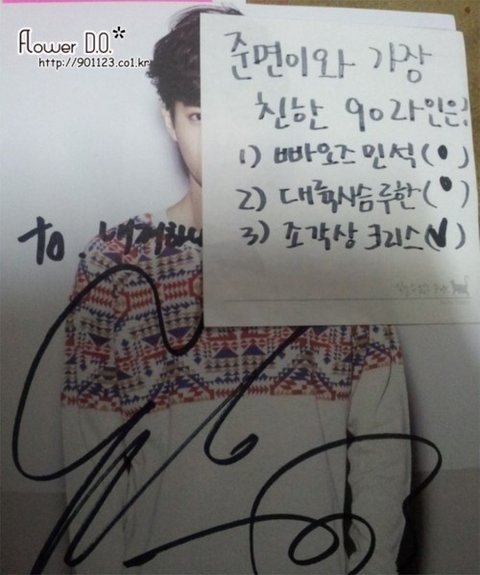 Flower D.O.*
http://901123.co1.kr
준면이와 가장
친한 90라인은?
1) 빠오즈 민석 ( )
2) 대륙사슴 루한 ( )
3) 조각상 크리스 (✓)
to.